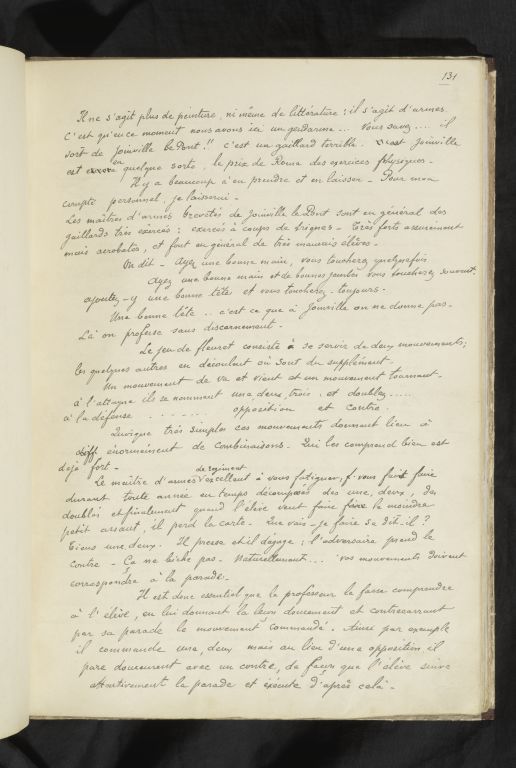 131
Il ne s'agit plus de peinture, ni même de littérature : il s'agit d'armes.
C'est qu'en ce moment nous avons ici un gendarme... Vous savez... il
sort de Joinville le Pont !! c'est un gaillard terrible. C'est Joinville
est en quelque sorte, le prix de Rome des exercices physiques.
Il y a beaucoup à en prendre et en laisser - Pour mon
compte personnel, je laisserai -
Les maîtres d'armes brevetés de Joinville le Pont sont en général des
gaillards très exercés : exercés à coups de trignes - Très forts assurément
mais acrobates, et font en général de très mauvais élèves -
On dit - Ayez une bonne main, vous toucherez quelquefois
Ayez une bonne main et de bonnes jambes vous toucherez souvent
ajoutez-y une bonne tête et vous toucherez toujours -
Une bonne tête... c'est ce que à Joinville on ne donne pas -
Là on professe sans discernement -
Le jeu de fleuret consiste à se servir de deux mouvements ;
les quelques autres en découlent où sont du supplément -
Un mouvement de va et vient et un mouvement tournant -
à l'attaque ils se nomment une deux trois, et doublez .....
à la défense ....... opposition et contre.
Quoique très simples ces mouvements donnent lieu à
diff énormément de combinaisons - Qui les comprend bien est
déjà fort -
de régiment
Le maître d'armes excellent à vous fatiguer, vous fait faire
durant toute année en temps décomposés des une, deux, des
doublés et finalement quand l'élève veut faire faire le moindre
petit assaut, il perd la carte - Que vais-je faire se dit-il ?
Tiens une deux. Il presse et il dégage ; l'adversaire prend le
contre - Ça ne biche pas - Naturellement... vos mouvements doivent
correspondre à la parade -
Il est donc essentiel que le professeur le fasse comprendre
à l'élève, en lui donnant la leçon doucement et contrecarrant
par sa parade le mouvement commandé - Ainsi par exemple
il commande une, deux mais au lieu d'une opposition il
pare doucement avec un contre, de façon que l'élève suive
attentivement la parade et exécute d'après celà -